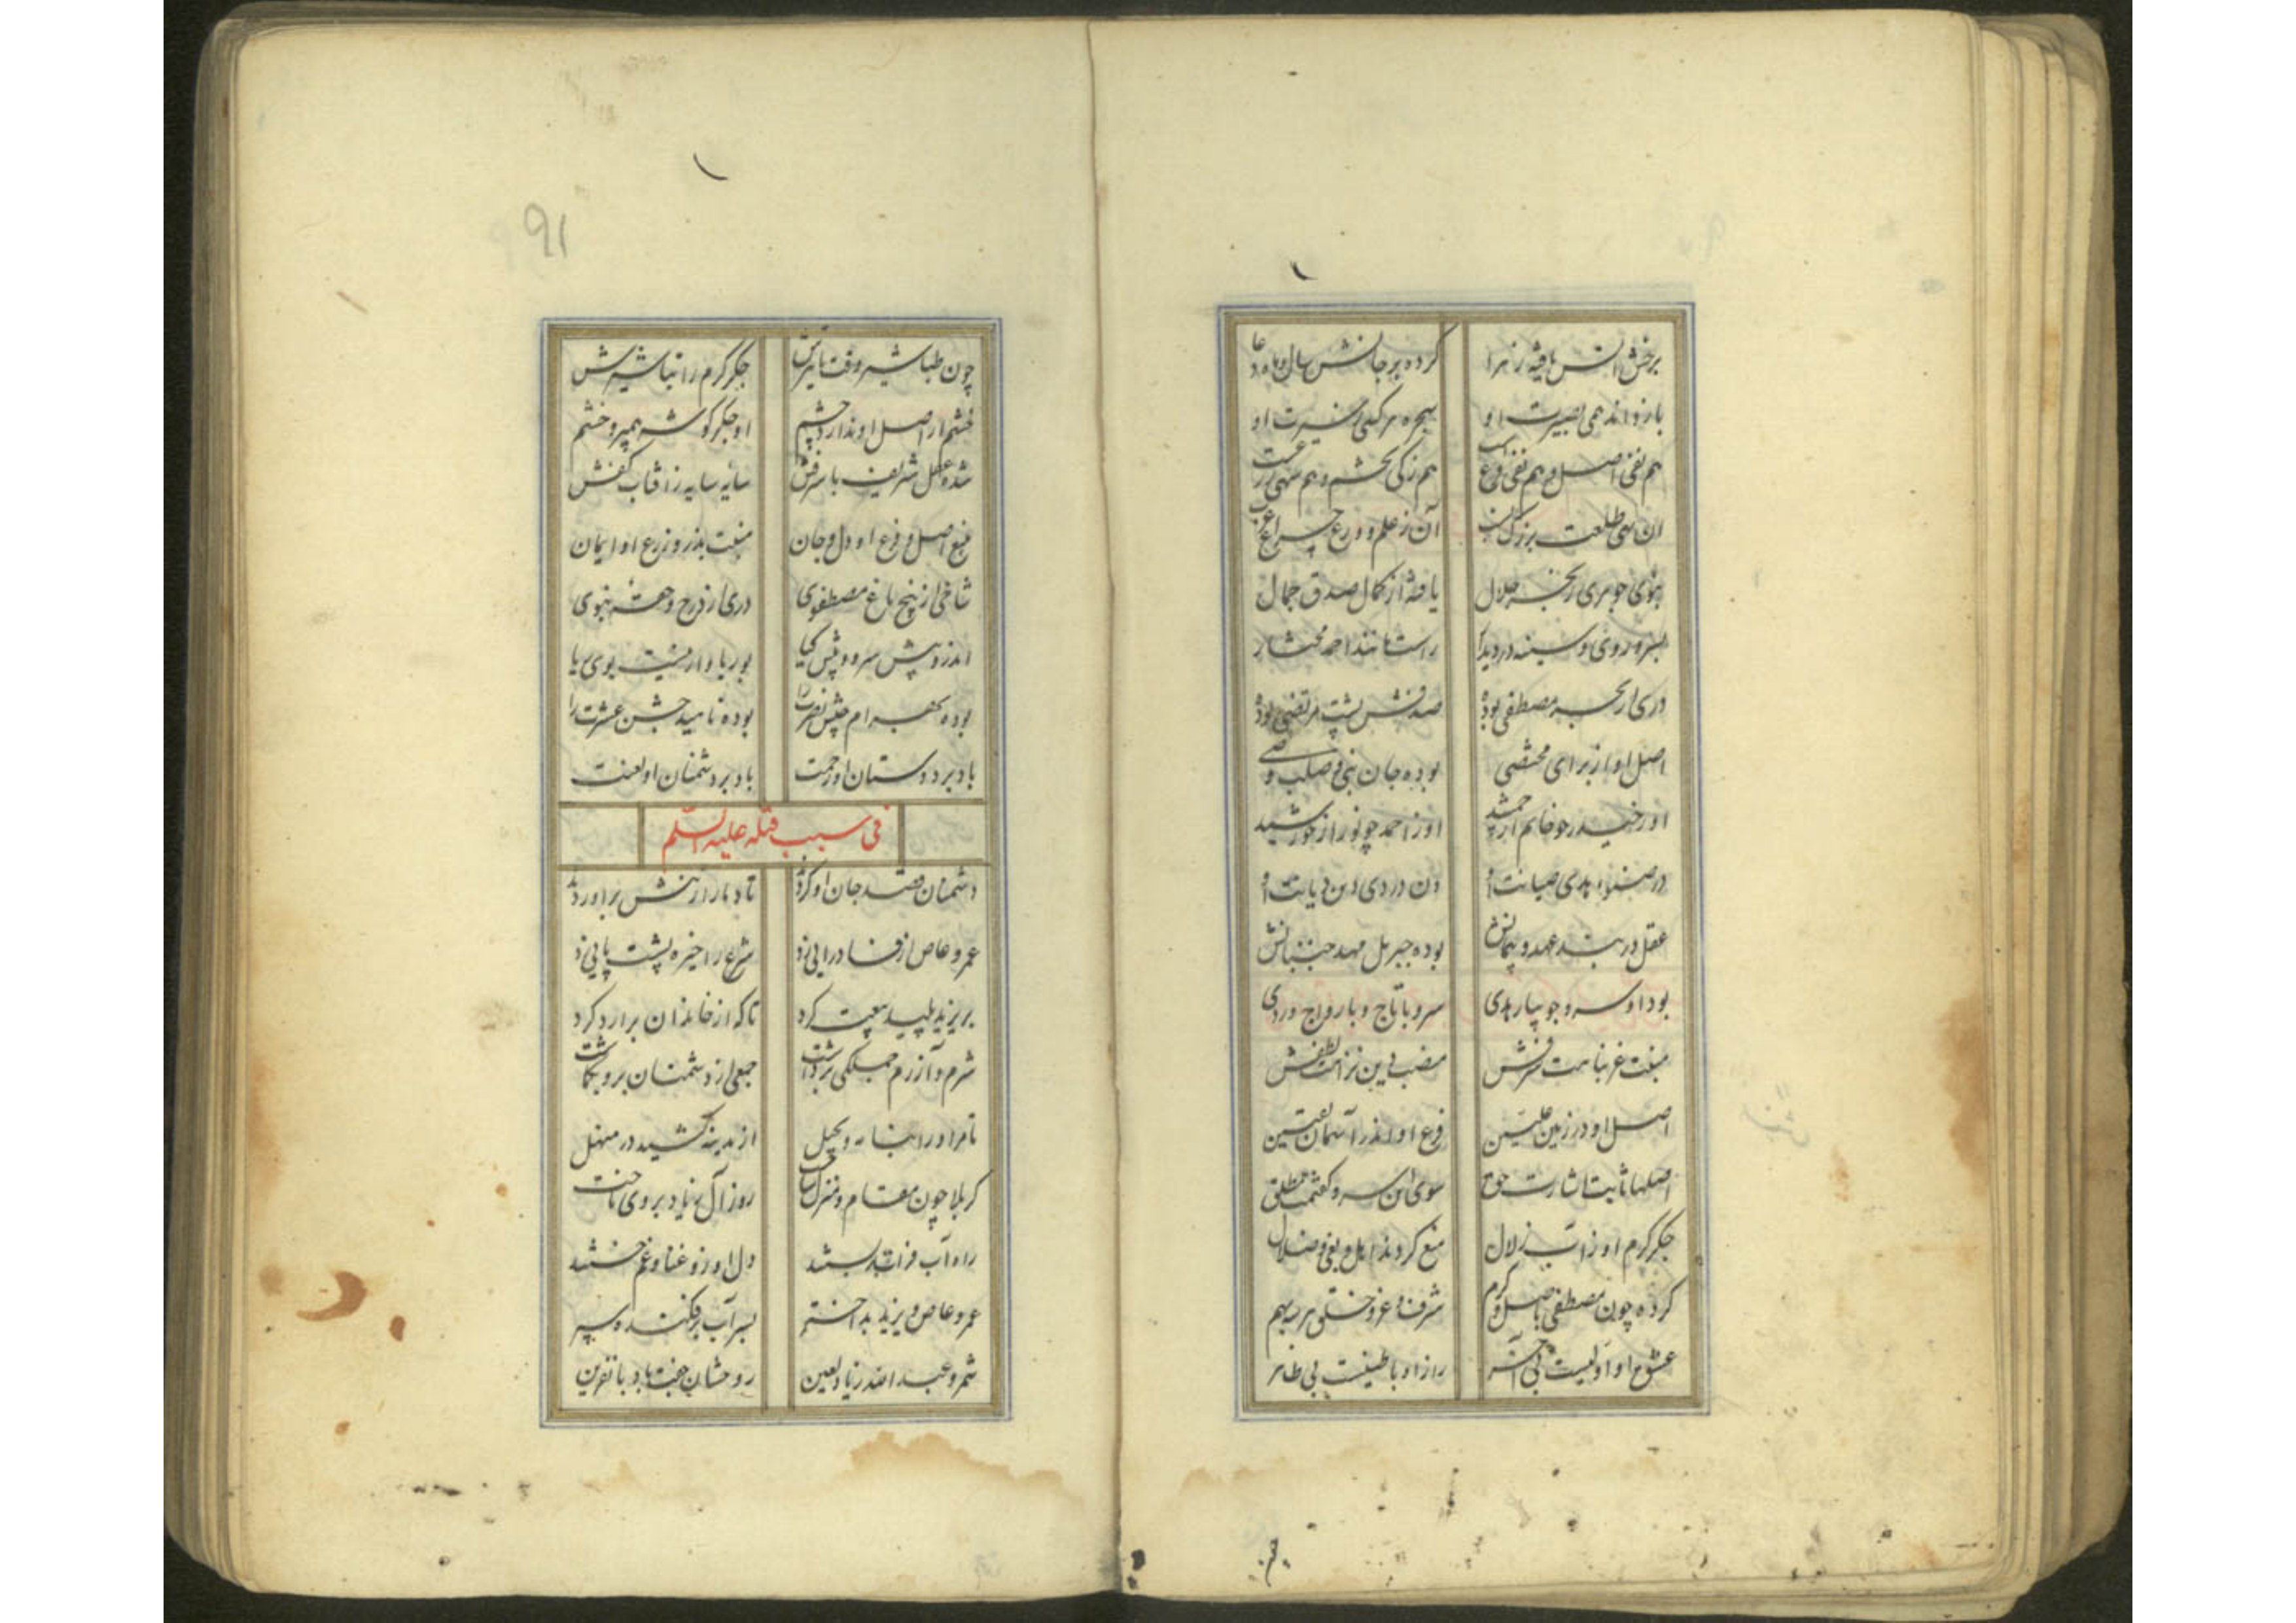 کرده بر جانش سال و ماه دعا
بارنواند همی بصیرت او
هم نقی اصل و هم نقی فرع
هم زکی خشم و هم سهی
آن بهی طلعت بزرگ
آن ز علم و ورع چراغ
جوهری ز بحر جلال
یافته از کمال صدق جمال
بسر و روی و سینه در دیدار
راست مانند احمد مختار
دری از بحر مصطفی بوده
صدفش پشت مرتضی بوده
اصل او از برای
بوده جان نبی و صلب وصی
او ز حیدر چو خاتم از جمشید
او ز احمد چو نور از خورشید
در صیانت او
دیانت او
عقل در بند عهد و پیمانش
بوده جبریل مهد جنبانش
بود او سرو جویبار هدی
سرو با تاج و با رواج وردی
شرفش
منصب دین نزاهت لطفش
اصل او در زمین علیین
فرع او اندر آسمان یقین
اصلها ثابت اشارت حق
سوی این سرو گفتمت مطلق
جگر گرم او ز آب زلال
منع کردند اهل بغی و ضلال
کرده چون مصطفی باصل و کرم
شرف و عز و خلق هر سه بهم
عشق او اولیست بی آخر
راز او باطنیست بی ظاهر
91
چون طباشیر وقت تابیرش
جگر گرم را تباشیرش
خشم از اصل او ندارد چشم
او جگر گوشه پیمبر و خشم
شده عقل شریف با شرفش
سایه سایه ز آفتاب کفش
منبع اصل و فرع او دل و جان
منبت بذر و زرع او ایمان
شاخی از بیخ باغ مصطفوی
دری از درج و حقه نبوی
اندرو بیش سرو و بیش گیا
بوریا وار نیست بوی ریا
بوده بهرام جیش نصرت را
بوده ناهید جشن عشرت را
باد بر دوستان او رحمت
باد بر دشمنان او لعنت
فی سبب قتله علیه السلم
دشمنان قصد جان او کردند
تا دمار از تنش برآوردند
عمرو عاص از فساد رایی زد
شرع را خیره پشت پایی زد
بر یزید پلید بیعت کرد
تا که از خاندان برآرد گرد
شرم و آزرم جملگی برداشت
جمعی از دشمنان برو بگماشت
تا مر او را بنامه و بحیل
از مدینه کشید در منهل
کربلا چون مقام و منزل ساخت
روز آل زیاد بر وی تاخت
راه آب فرات بر بستند
دل او زو عنا و غم خستند
عمرو عاص و یزید بد اختر
بسر آب برفکنده سپر
شمر و عبدالله زیاد لعین
روحشان جفت باد با نفرین